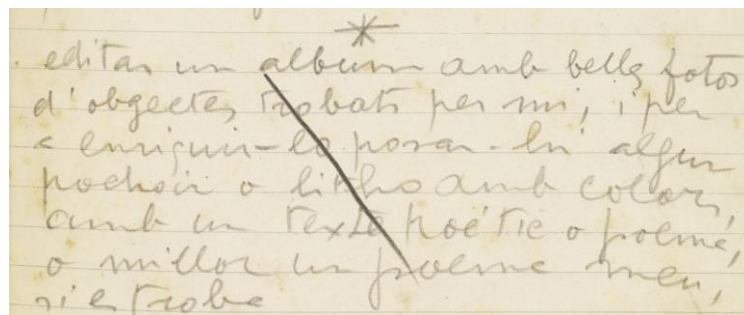 editar un album amb belles fotos
d'obgectes trobats per mi, i per
a enriquir-lo posar-hi algun
pochoir o litho amb colors,
amb un texte poétic o poeme,
o millor un poeme meu,
si es troba